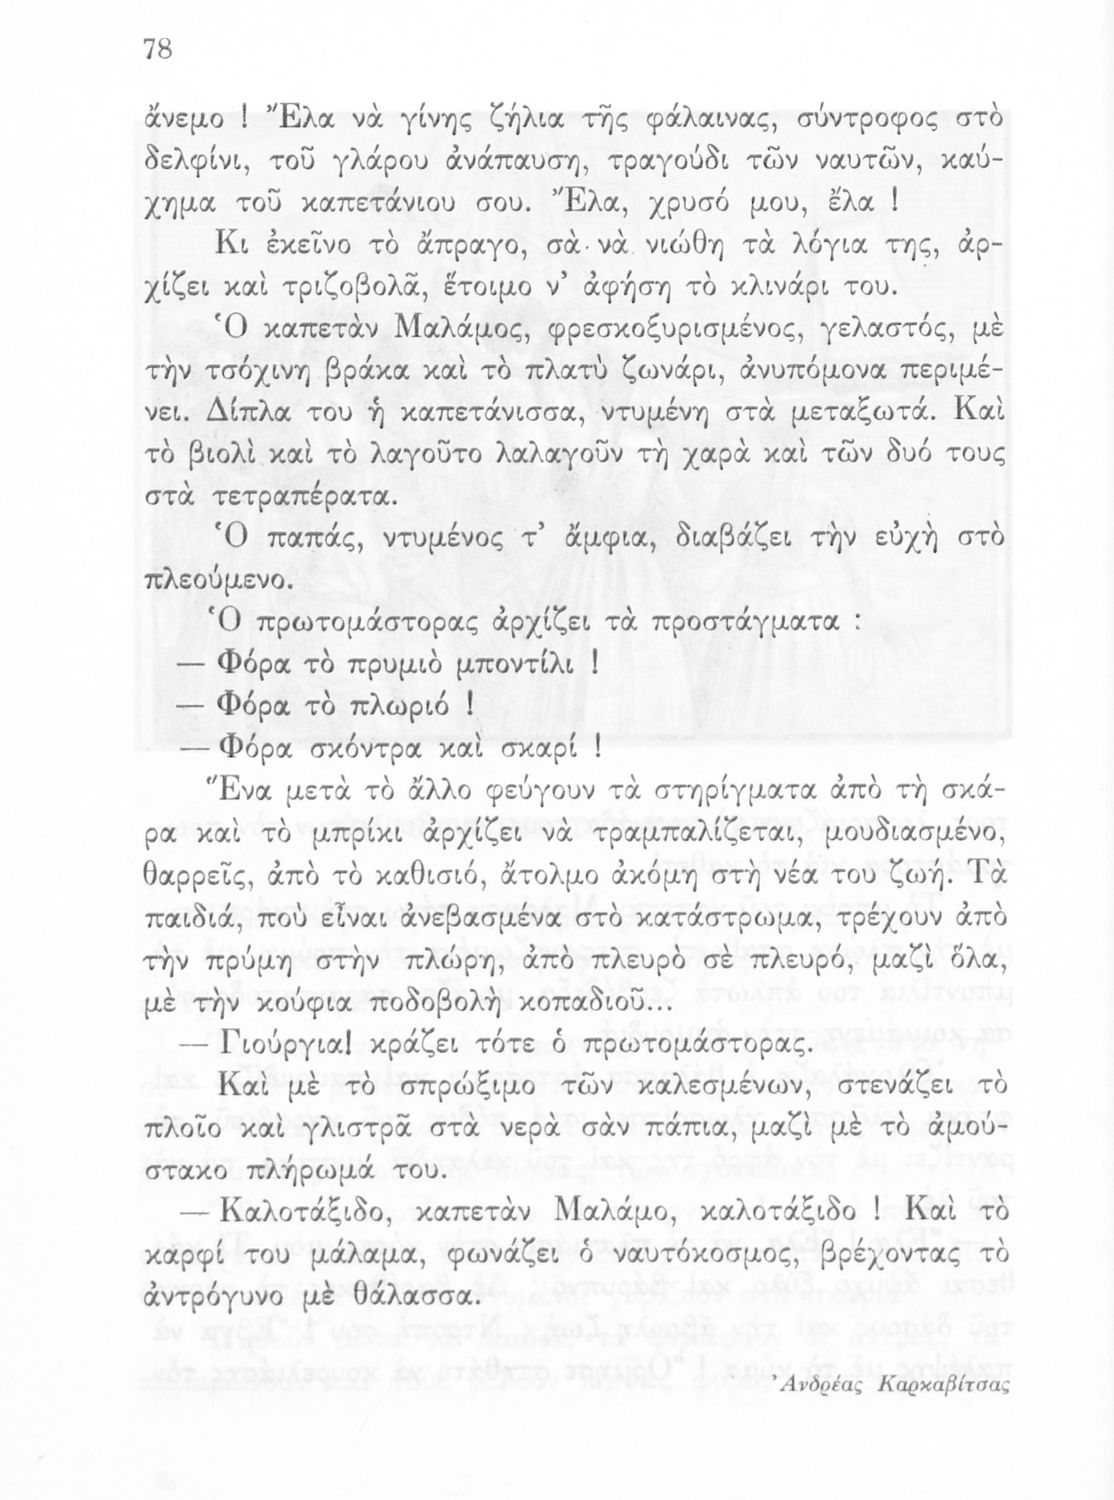 78
ἄνεμο ! Ἔλα νὰ γίνης ζήλια τῆς φάλαινας, σύντροφος στὸ
δελφίνι, τοῦ γλάρου ἀνάπαυση, τραγούδι τῶν ναυτῶν, καύ-
χημα τοῦ καπετάνιου σου. Ἔλα, χρυσό μου, ἔλα !
Κι ἐκεῖνο τὸ ἄπραγο, σὰ νὰ νιώθη τὰ λόγια της, ἀρ-
χίζει καὶ τριζοβολᾶ, ἕτοιμο ν’ ἀφήση τὸ κλινάρι του.
Ὁ καπετὰν Μαλάμος, φρεσκοξυρισμένος, γελαστός, μὲ
τὴν τσόχινη βράκα καὶ τὸ πλατὺ ζωνάρι, ἀνυπόμονα περιμέ-
νει. Δίπλα του ἡ καπετάνισσα, ντυμένη στὰ μεταξωτά. Καὶ
τὸ βιολὶ καὶ τὸ λαγοῦτο λαλαγοῦν τὴ χαρὰ καὶ τῶν δυό τους
στὰ τετραπέρατα.
Ὁ παπάς, ντυμένος τ’ ἄμφια, διαβάζει τὴν εὐχὴ στὸ
πλεούμενο.
Ὁ πρωτομάστορας ἀρχίζει τὰ προστάγματα :
— Φόρα τὸ πρυμιὸ μποντίλι !
— Φόρα τὸ πλωριό !
— Φόρα σκόντρα καὶ σκαρί !
Ἕνα μετὰ τὸ ἄλλο φεύγουν τὰ στηρίγματα ἀπὸ τὴ σκά-
ρα καὶ τὸ μπρίκι ἀρχίζει νὰ τραμπαλίζεται, μουδιασμένο,
θαρρεῖς, ἀπὸ τὸ καθισιό, ἄτολμο ἀκόμη στὴ νέα του ζωή. Τὰ
παιδιά, ποὺ εἶναι ἀνεβασμένα στὸ κατάστρωμα, τρέχουν ἀπὸ
τὴν πρύμη στὴν πλώρη, ἀπὸ πλευρὸ σὲ πλευρό, μαζὶ ὅλα,
μὲ τὴν κούφια ποδοβολὴ κοπαδιοῦ...
— Γιούργια! κράζει τότε ὁ πρωτομάστορας.
Καὶ μὲ τὸ σπρώξιμο τῶν καλεσμένων, στενάζει τὸ
πλοῖο καὶ γλιστρᾶ στὰ νερὰ σὰν πάπια, μαζὶ μὲ τὸ ἀμού-
στακο πλήρωμά του.
— Καλοτάξιδο, καπετὰν Μαλάμο, καλοτάξιδο ! Καὶ τὸ
καρφί του μάλαμα, φωνάζει ὁ ναυτόκοσμος, βρέχοντας τὸ
ἀντρόγυνο μὲ θάλασσα.
Ἀνδρέας Καρκαβίτσας